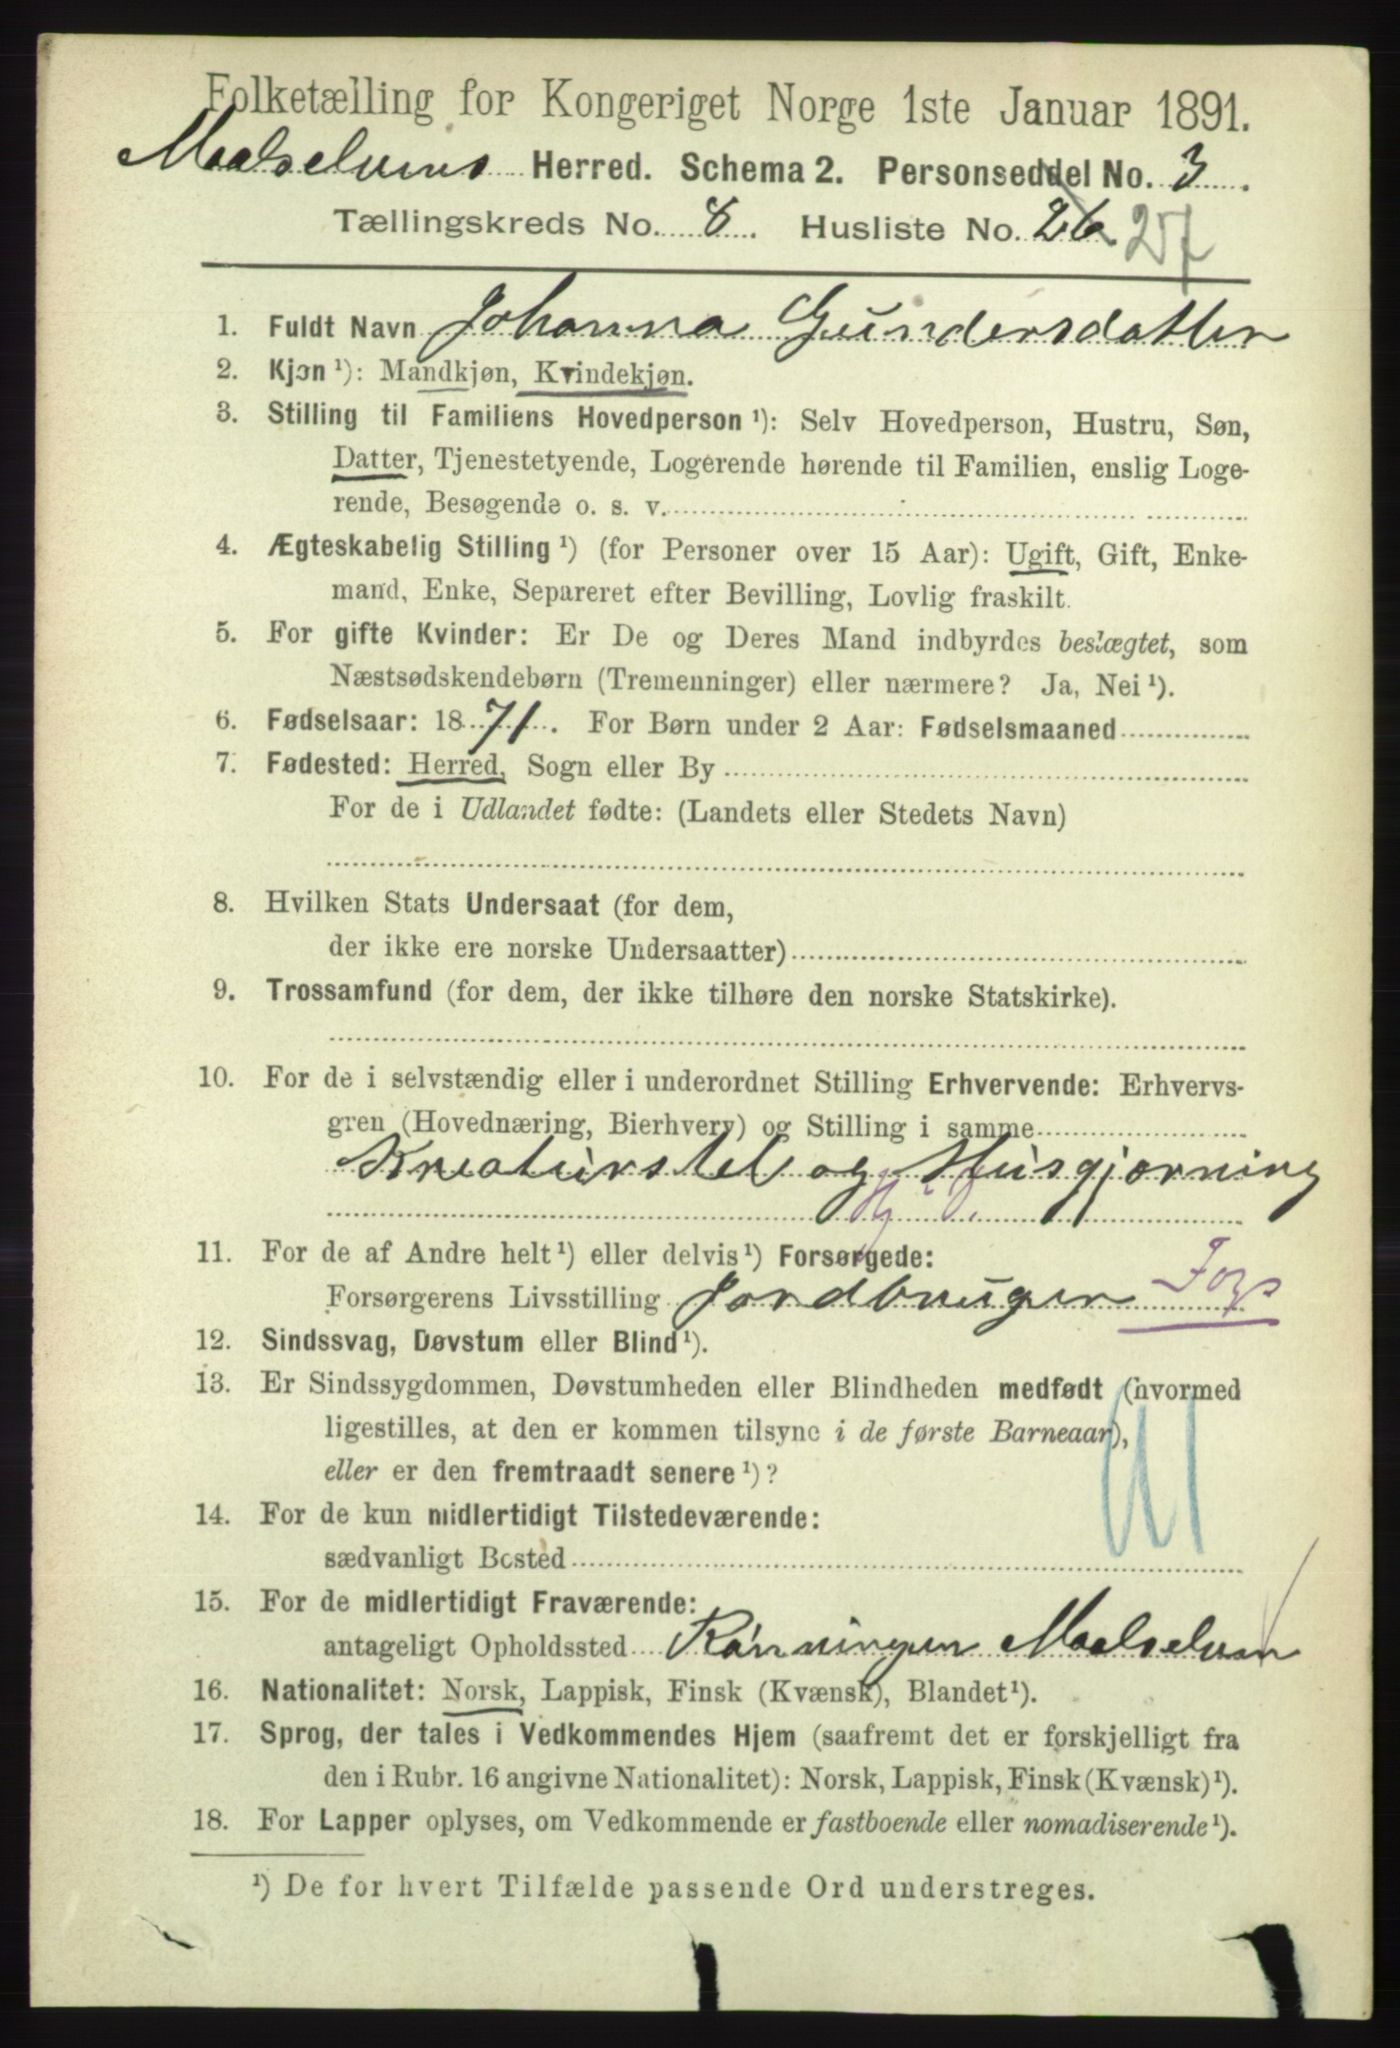 Folketælling for Kongeriget Norge 1ste Januar 1891.
Maalselvens Herred. Schema 2. Personseddel No. 3.
Tællingskreds No. 8. Husliste No. 26. 27
1. Fuldt Navn Johanna Gundersdatter
2. Kjøn ¹): Mandkjøn, Kvindekjøn.
3. Stilling til Familiens Hovedperson ¹): Selv Hovedperson, Hustru, Søn,
Datter, Tjenestetyende, Logerende hørende til Familien, enslig Loge-
rende, Besøgende o. s. v.
4. Ægteskabelig Stilling ¹) (for Personer over 15 Aar): Ugift, Gift, Enke-
mand, Enke, Separeret efter Bevilling, Lovlig fraskilt.
5. For gifte Kvinder: Er De og Deres Mand indbyrdes beslægtet, som
Næstsødskendebørn (Tremenninger) eller nærmere? Ja, Nei ¹).
6. Fødselsaar: 1871. For Børn under 2 Aar: Fødselsmaaned
7. Fødested: Herred, Sogn eller By
For de i Udlandet fødte: (Landets eller Stedets Navn)
8. Hvilken Stats Undersaat (for dem,
der ikke ere norske Undersaatter)
9. Trossamfund (for dem, der ikke tilhøre den norske Statskirke).
10. For de i selvstændig eller i underordnet Stilling Erhvervende: Erhvervs-
gren (Hovednæring, Bierhverv) og Stilling i samme
Kreaturstel og Husgjørning
11. For de af Andre helt ¹) eller delvis ¹) Forsørgede:
Forsørgerens Livsstilling Jordbruger
12. Sindssvag, Døvstum eller Blind ¹).
13. Er Sindssygdommen, Døvstumheden eller Blindheden medfødt (hvormed
ligestilles, at den er kommen tilsyne i de første Barneaar),
eller er den fremtraadt senere ¹)?
14. For de kun midlertidigt Tilstedeværende:
sædvanligt Bosted
15. For de midlertidigt Fraværende:
antageligt Opholdssted Rønningen Maalselven
16. Nationalitet: Norsk, Lappisk, Finsk (Kvænsk), Blandet ¹).
17. Sprog, der tales i Vedkommendes Hjem (saafremt det er forskjelligt fra
den i Rubr. 16 angivne Nationalitet): Norsk, Lappisk, Finsk (Kvænsk) ¹).
18. For Lapper oplyses, om Vedkommende er fastboende eller nomadiserende ¹).
¹) De for hvert Tilfælde passende Ord understreges.